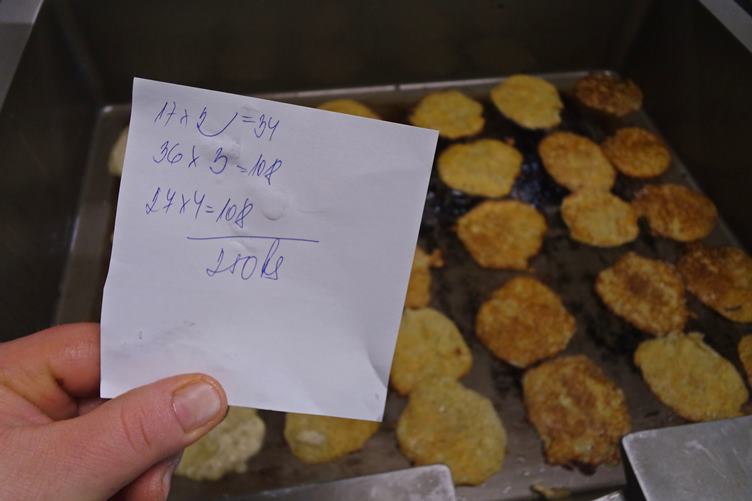 17 x 2 = 34
36 x 3 = 108
27 x 4 = 108
250 ks